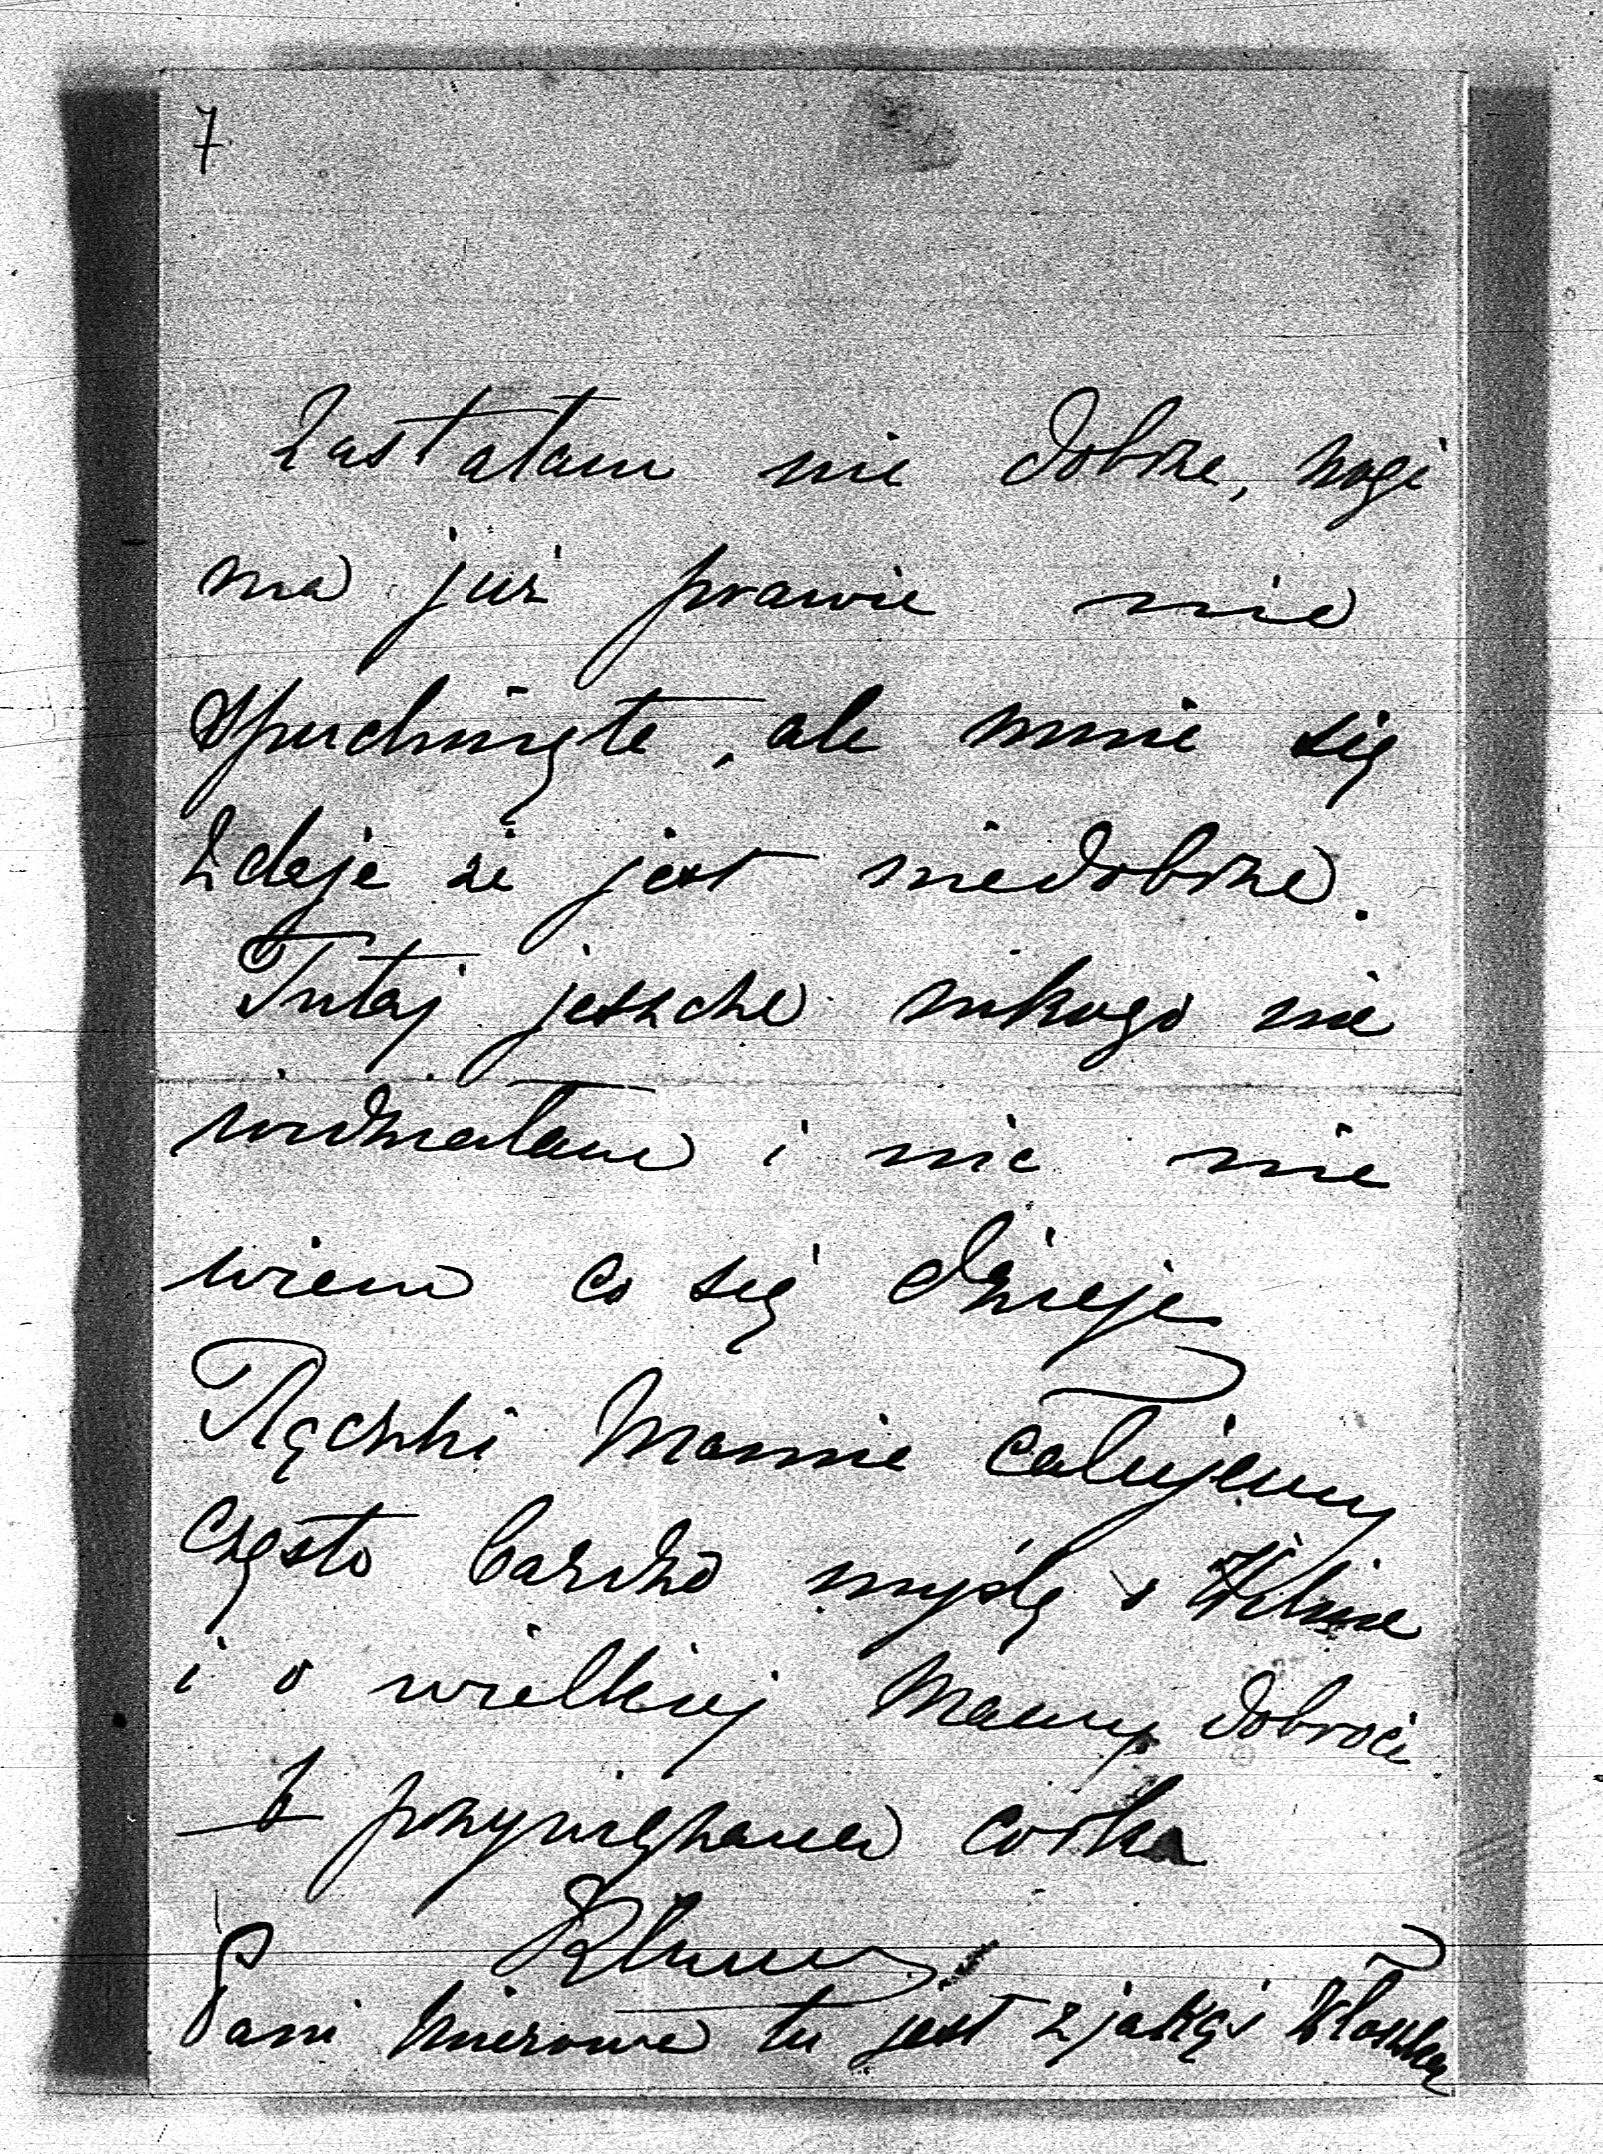 7
Zastałam nie dobrze, nogi
ma już prawie nie
spuchnięte, ale mnie się
zdaje że jest niedobrze.
Tutaj jeszcze nikogo nie
widziałam i nic nie
wiem co się dzieje
Rączki Mamie całujemy
Często bardzo myślę o Wilnie
i o wielkiej Mamy dobroci
przywiązana córka
Pani tu jest z jakąś